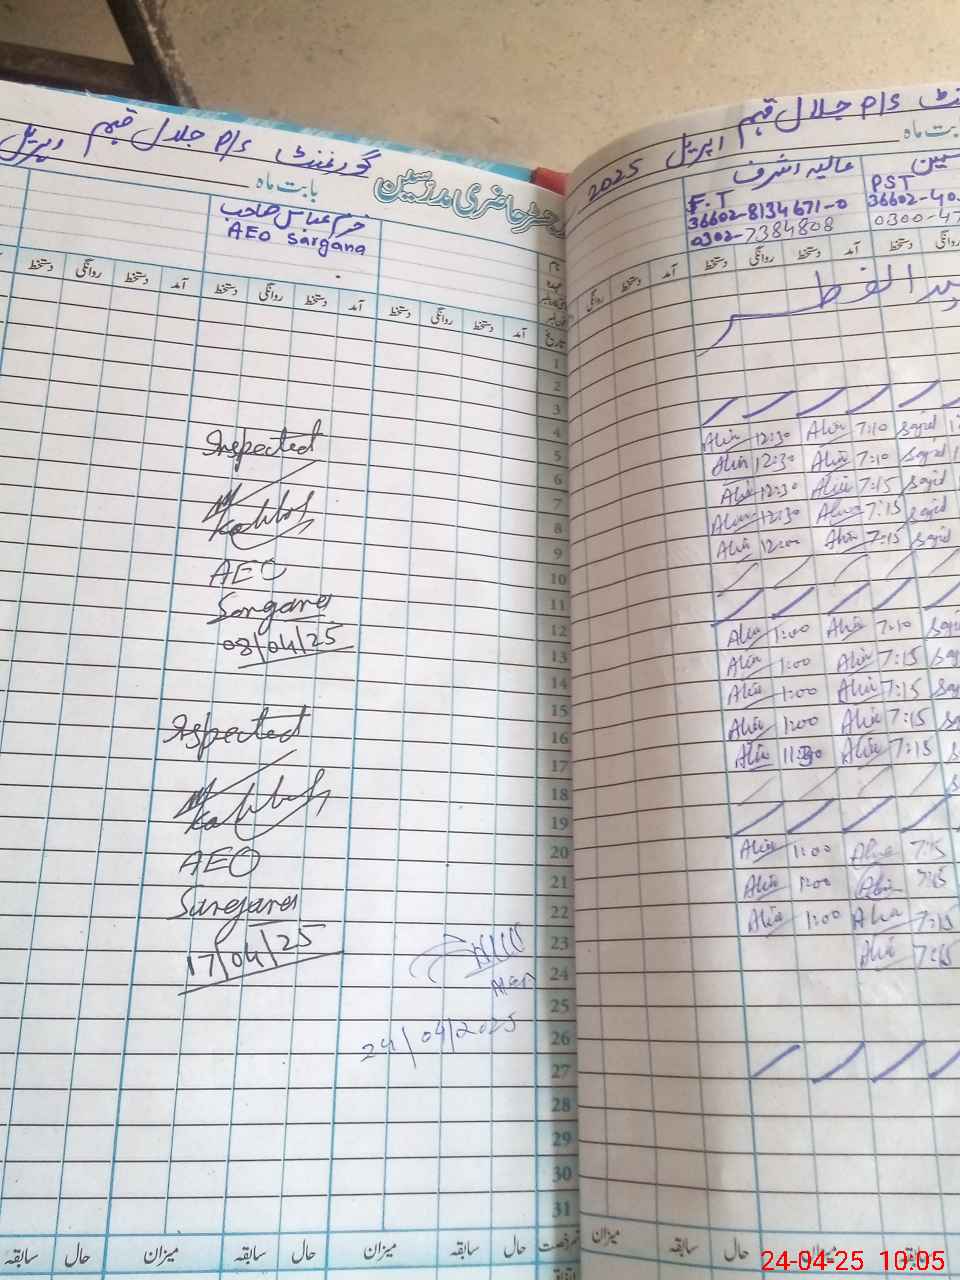 گورنمنٹ P/S جلال قہم
اپریل
رجسٹر حاضری مدرسین
بابت ماہ
خرم عباس صاحب
AEO Sargana
آمد دستخط روانگی دستخط آمد دستخط روانگی دستخط آمد دستخط روانگی دستخط
تاریخ
1
2
3
4
5
6
7
8
9
10
11
12
13
14
15
16
17
18
19
20
21
22
23
24
25
26
27
28
29
30
31
Inspected
AEO
Sargana
08/04/25
Ispected
AEO
Sargana
17/04/25
24/04/2025
میزان سابقہ حال میزان سابقہ حال میزان سابقہ حال
P/S جلال قہم اپریل 2025
بابت ماہ
عالیہ اشرف
F.T
36602-8134671-0
0302-7384808
PST
36602-40
0300-47
آمد دستخط روانگی دستخط آمد دستخط روانگی
عید الفطر
Sajid 7:10 Alia 12:30 Alia
Sajid 7:10 Alia 12:30 Alia
Sajid 7:15 Alia 12:30 Alia
Sajid 7:15 Alia 12:30 Alia
Sajid 7:15 Alia 12:00 Alia
7:10 Alia 1:00 Alia
7:15 Alia 1:00 Alia
7:15 Alia 1:00 Alia
7:15 Alia 1:00 Alia
7:15 Alia 11:30 Alia
7:15 Alia 1:00 Alia
7:15 Alia 1:00 Alia
7:15 Alia 1:00 Alia
7:15 Alia
میزان سابقہ حال میزان سابقہ
24-04-25 10:05